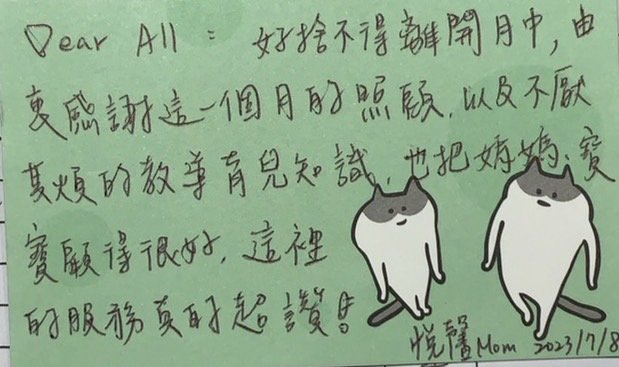 Dear All : 好捨不得離開月中, 由
衷感謝這一個月的照顧, 以及不厭
其煩的教導育兒知識, 也把媽媽、寶
寶顧得很好, 這裡
的服務真的超讚!
悅馨Mom 2023/7/8